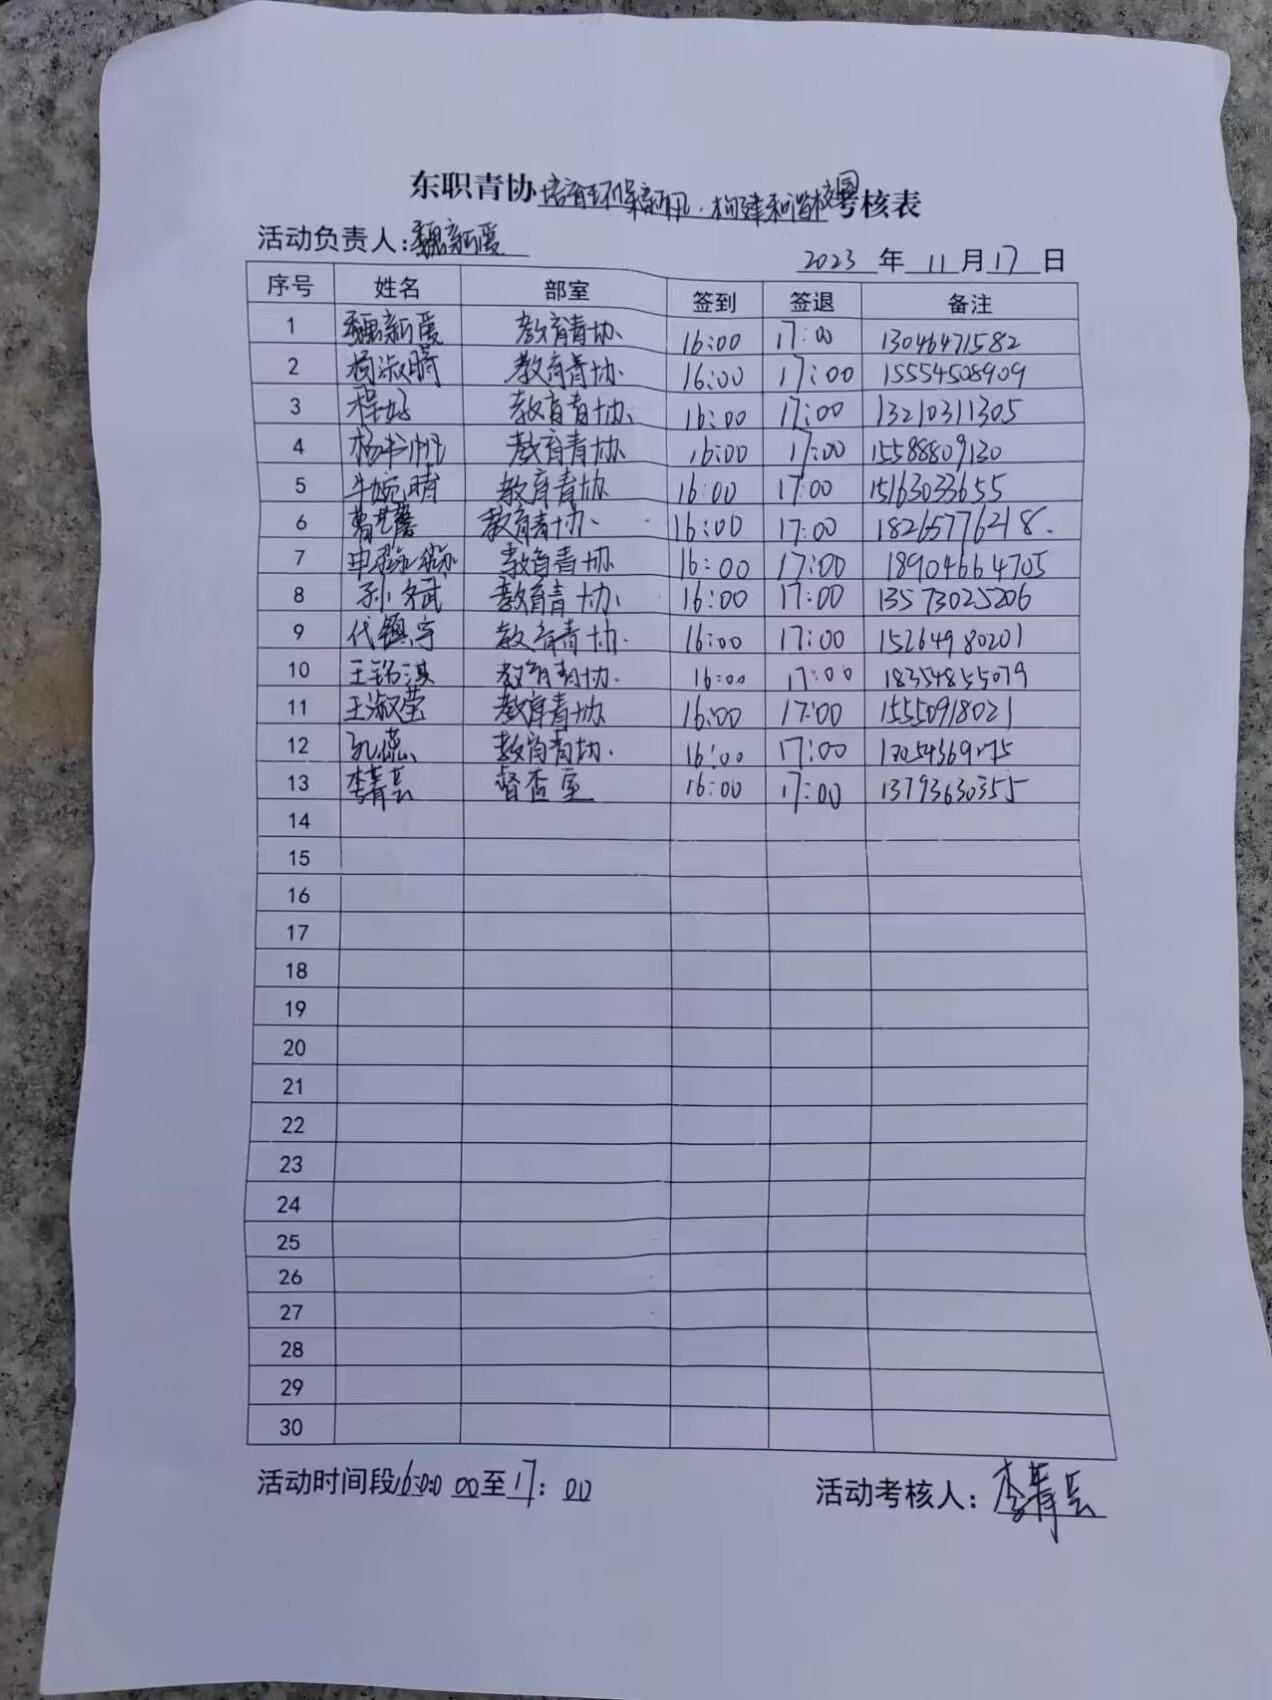 东职青协培育环保新风·构建和谐校园考核表
活动负责人:魏新爱
2023年11月17日
序号 姓名 部室 签到 签退 备注
1 魏新爱 教育青协 16:00 17:00 13046471582
2 杨淑晴 教育青协 16:00 17:00 15554508909
3 程好 教育青协 16:00 17:00 13210311305
4 杨书帆 教育青协 16:00 17:00 15588809130
5 牛婉晴 教育青协 16:00 17:00 15163033655
6 曹艺馨 教育青协 16:00 17:00 18265776218
7 申 教育青协 16:00 17:00 18904664705
8 孙文斌 教育青协 16:00 17:00 13573025206
9 代镇宇 教育青协 16:00 17:00 15264980201
10 王铭淇 教育青协 16:00 17:00 18354855079
11 王淑莹 教育青协 16:00 17:00 15550918021
12 孔 教育青协 16:00 17:00
13 李青芸 督查室 16:00 17:00 13793630355
14
15
16
17
18
19
20
21
22
23
24
25
26
27
28
29
30
活动时间段16:00 00至17:00
活动考核人:李青芸